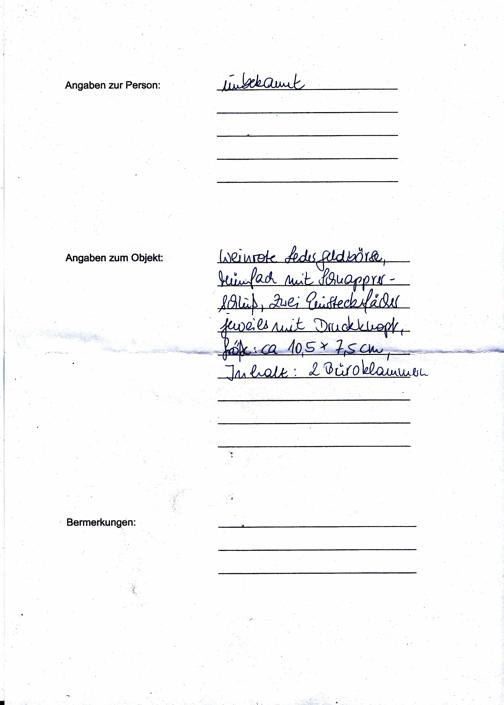 Angaben zur Person:
unbekannt
Angaben zum Objekt:
Weinrote Ledergeldbörse,
mit Schnapper-
zwei Einsteckfächer
jeweils mit Druckknopf,
Größe: ca 10,5 x 7,5 cm,
Inhalt: 2 Büroklammern
Bermerkungen: